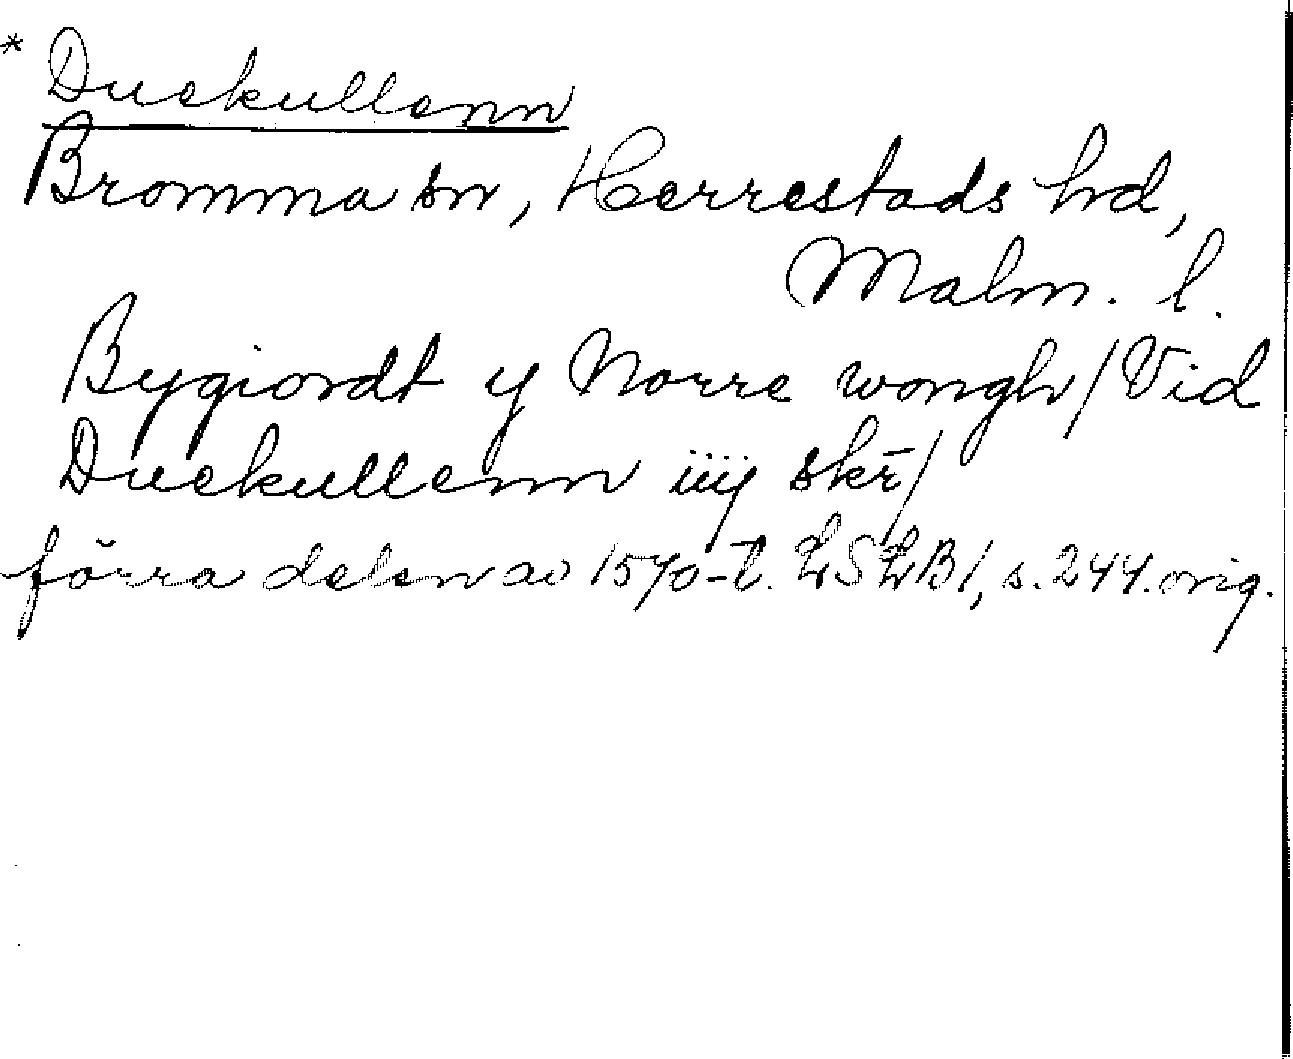 * Duekullenn
Bromma sn, Herrestads hd,
Malm. l.
Bygiordt y Norre wongh/Vid
Duekullenn iiij skr̄/
förra delen av 1570-t. LSLB1, s. 244. orig.